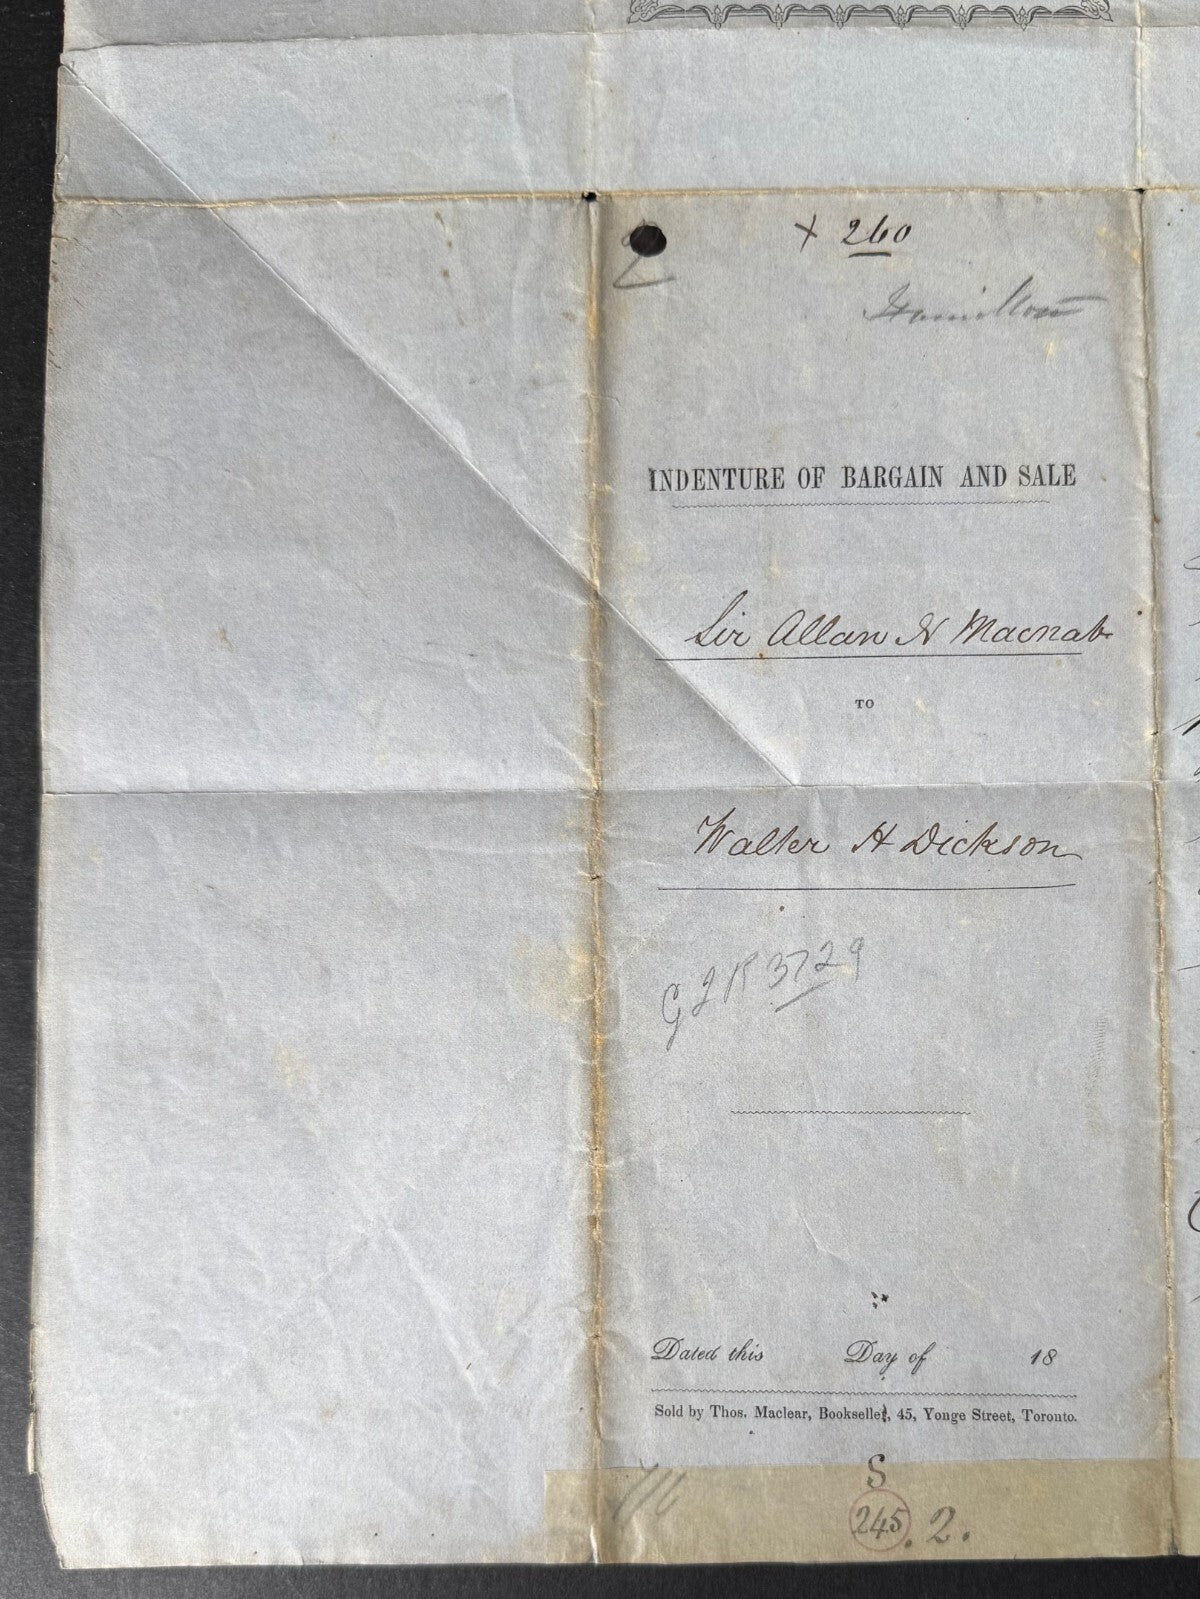 + 260
2
Hamilton
INDENTURE OF BARGAIN AND SALE
Sir Allan N Macnab
TO
Walter H Dickson
3729
Dated this Day of 18
Sold by Thos. Maclear, Bookseller, 45, Yonge Street, Toronto.
S
245.2.